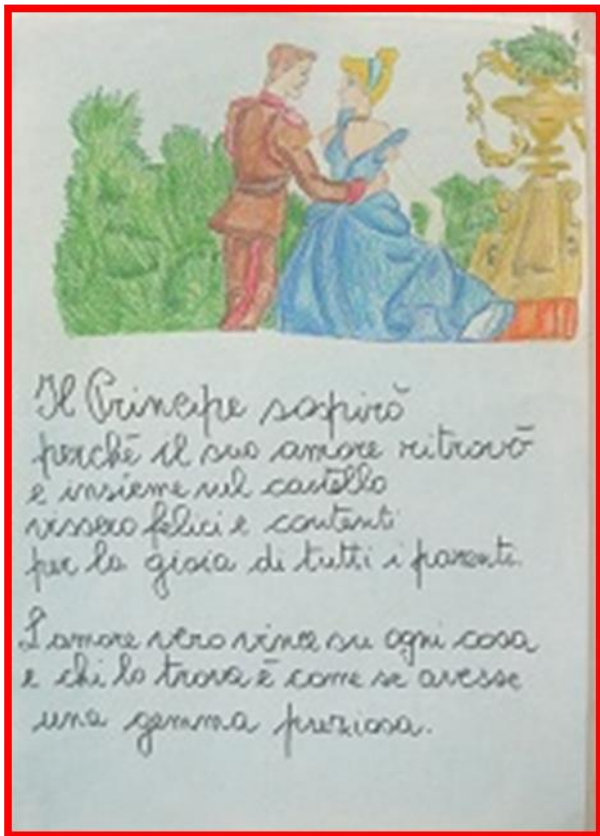 Il Principe sospirò
perché il suo amore ritrovò
e insieme nel castello
vissero felici e contenti
per la gioia di tutti i parenti.
L'amore vero vince su ogni cosa
e chi lo trova è come se avesse
una gemma preziosa.